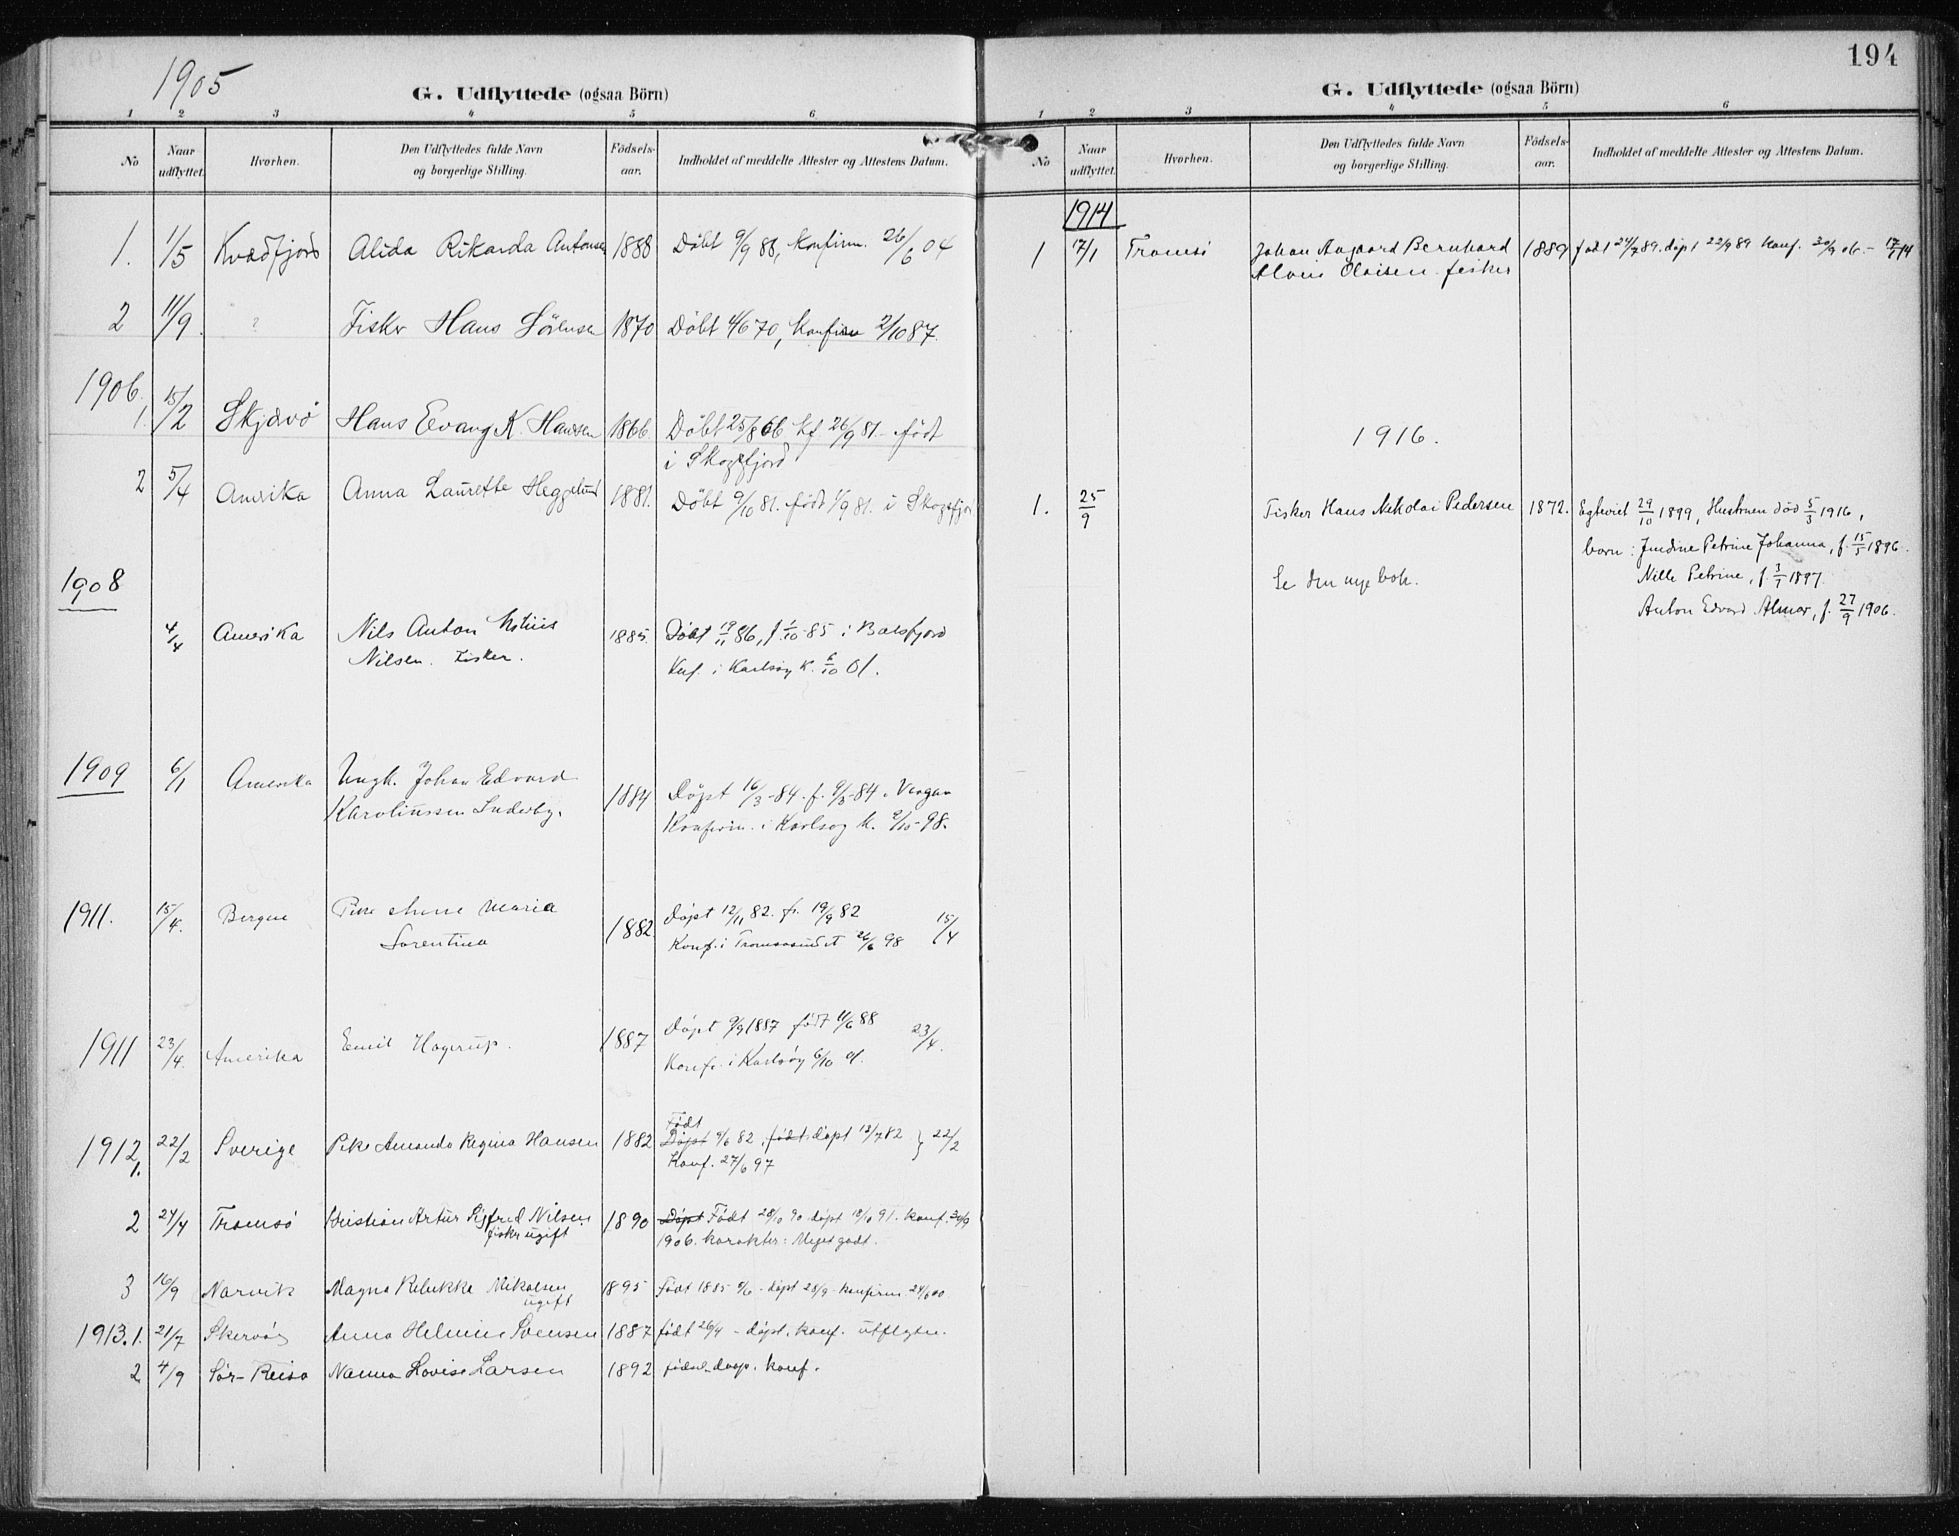 1905
G. Udflyttede (ogsaa Börn)
1 2 3 4 5 6
No Naar udflyttet. Hvorhen. Den Udflyttedes fulde Navn og borgerlige Stilling. Födsels-aar. Indholdet af meddelte Attester og Attestens Datum.
1. 1/5 Kvædfjord Alida Rikarda Antonsen 1888 Döbt 9/9 88, konfirm. 26/6 04
2 11/9 ? Fisker Hans Sörensen 1870 Döbt 4/6 70, konfirm 2/10 87
1906.
1. 15/2 Skjærvö Hans Evang K. Hansen 1866 Döbt 25/8 66 kf 26/9 81 født
i Skogsfjord
2 5/4 Amerika Anna Laurette Heggelund 1881. Döbt 9/10 81. født 1/9 81. i Skogsfjord
1908
4/4 Amerika Nils Anton
Nilsen. Fisker. 1885. Döbt 19/11 86, f. 1/10 85 i Balsfjord
Knf. i Karlsøy k. 6/10 01.
1909 6/1 Amerika Ungk. Johan Edvard
Karolinssen Sörderby. 1884 Døpt 16/3-84. f. 9/3-84 i
Konfirm. i Karlsøy k. 2/10-98.
1911. 15/4. Bergen Pike Maria
Sorentina 1882. Døpt 12/11 82. f. 19/9 82
Konf. i Tromsøsundet 26/6 98 15/4
1911 23/4. Amerika Emil Hagerup. 1887 Døpt 9/9 1887 født 11/6 88
Konf. i Karlsøy 6/10 01. 23/4.
Født
1912 1. 22/2 Sverige Pike Amanda Regina Hansen 1882 Døpt 9/6 82. født døpt 13/7 82 } 22/2
Konf. 27/6 97
2 24/4 Tromsö Kristian Artur Sigfred Nilsen 1890 Døpt Født 28/10 90 døpt 18/10 91. konf. 30/9
fisker ugift 1906. karakter: Meget godt.
3 16/9 Narvik Magna Rebekke Nikolsen 1895 Født 1885 9/6 - døpt 28/9 - konfirm 24/6 00
ugift
1913. 1. 21/7 Skervöy Anna Helmine Svensen 1887 født 26/4 - døpt. konf. utflytn.
2 4/9 Sör-Reisa Nanna Lovise Larsen 1892 fødsel. daap. konf.
194
G. Udflyttede (ogsaa Börn)
1 2 3 4 5 6
No Naar udflyttet. Hvorhen. Den Udflyttedes fulde Navn og borgerlige Stilling. Fødsels-aar. Indholdet af meddelte Attester og Attestens Datum.
1914
1 17/1 Tromsö Johan Aagaard Bernhard 1889 født 24/7 89. døpt 22/9 89 konf. 30/9 06. - 17/1 14
Olaisen fisker
1916.
1. 25/9 Fisker Hans Nikolai Pedersen 1872. Egteviet 29/10 1899, Hustruen död 5/3 1916,
barn: Jendine Petrine Johanna, f. 15/5 1896.
Se den nye bok. Nille Petrine, f. 3/1 1897.
Anton Edvard Almar, f. 27/9 1906.